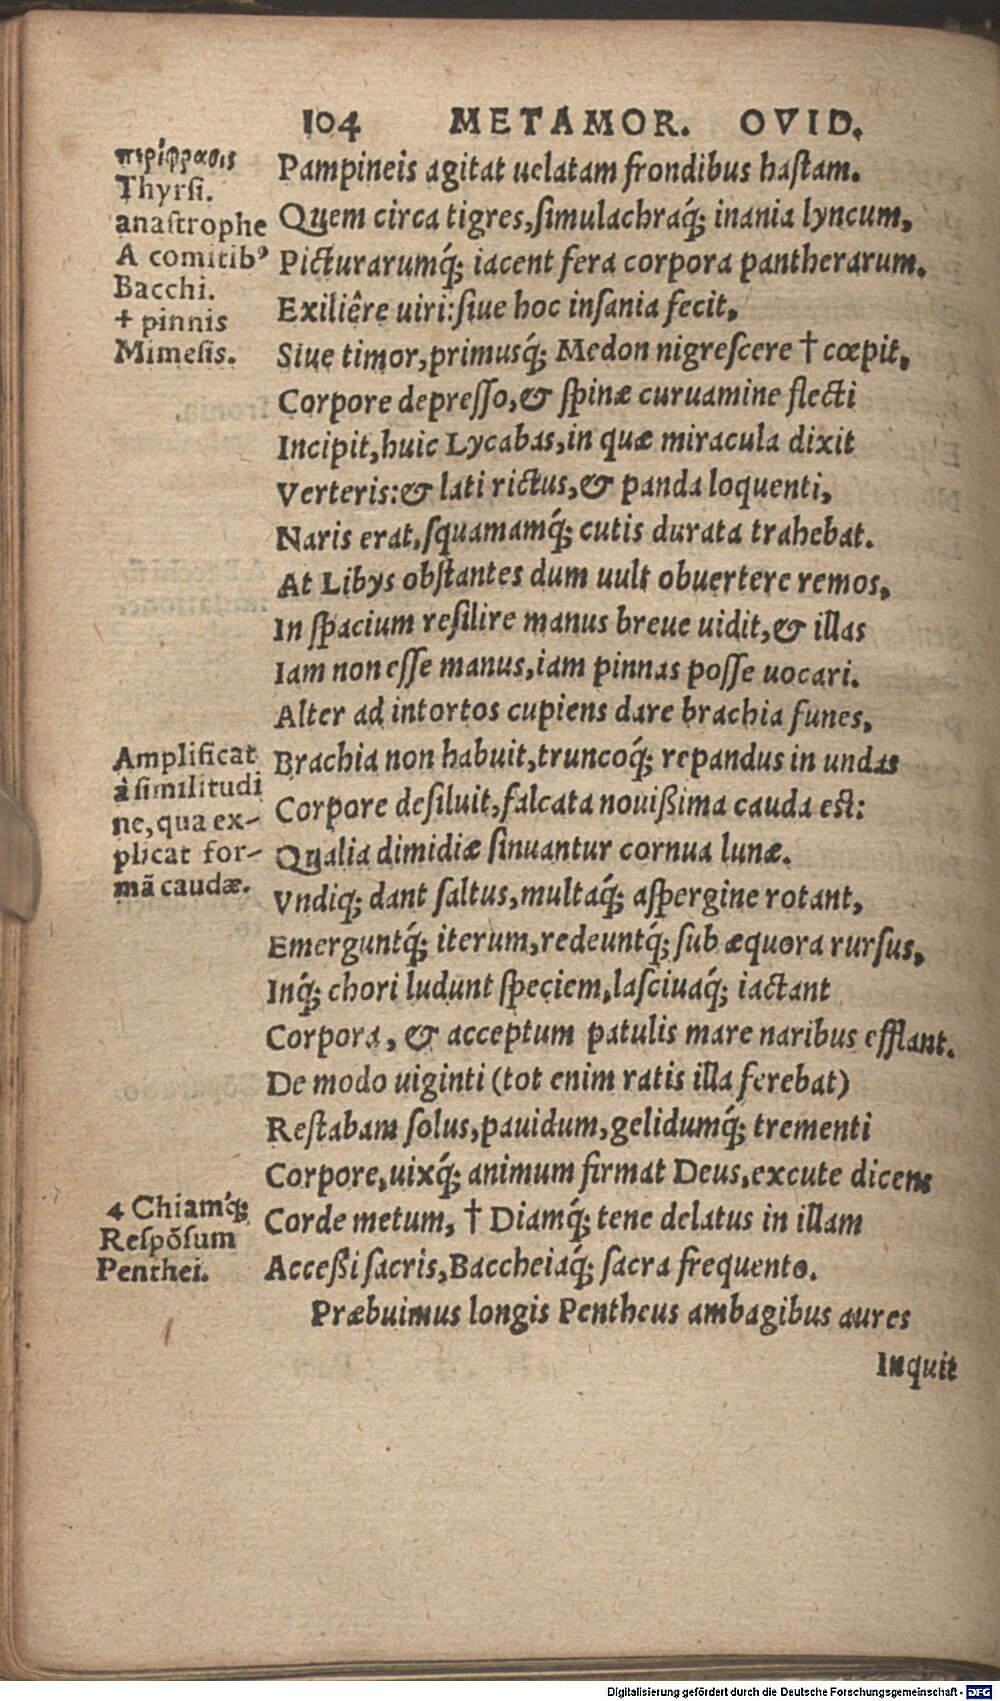 104 METAMOR. OVID.
περίφρασις
Thyrſi.
anaſtrophe
A comitibꝰ
Bacchi.
+ pinnis
Mimeſis.
Pampineis agitat uelatam frondibus haſtam.
Quem circa tigres, ſimulachraq́; inania lyncum,
Picturarumq́; iacent fera corpora pantherarum.
Exiliêre uiri: ſiue hoc inſania fecit,
Siue timor, primusq́; Medon nigreſcere † cœpit,
Corpore depreſſo, & ſpinæ curuamine flecti
Incipit, huic Lycabas, in quæ miracula dixit
Verteris: & lati rictus, & panda loquenti,
Naris erat, ſquamamq́; cutis durata trahebat.
At Libys obſtantes dum uult obuertere remos,
In ſpacium reſilire manus breue uidit, & illas
Iam non eſſe manus, iam pinnas poſſe uocari.
Alter ad intortos cupiens dare brachia funes,
Amplificat
à similitudi
ne, qua ex-
plicat for-
mã caudæ.
Brachia non habuit, truncoq́; repandus in undas
Corpore deſiluit, falcata nouißima cauda eſt:
Qualia dimidiæ ſinuantur cornua lunæ.
Vndiq; dant ſaltus, multaq́; aſpergine rotant,
Emerguntq́; iterum, redeuntq́; ſub æquora rurſus,
Inq́; chori ludunt ſpeciem, laſciuaq́; iactant
Corpora, & acceptum patulis mare naribus efflant.
De modo uiginti (tot enim ratis illa ferebat)
Reſtabam ſolus, pauidum, gelidumq́; trementi
Corpore, uixq́; animum firmat Deus, excute dicens
4 Chiamq́;
Reſpõſum
Penthei.
Corde metum, † Diamq́; tene delatus in illam
Acceßi ſacris, Baccheiaq́; ſacra frequento.
Præbuimus longis Pentheus ambagibus aures
Inquit
Digitalisierung gefördert durch die Deutsche Forschungsgemeinschaft - DFG